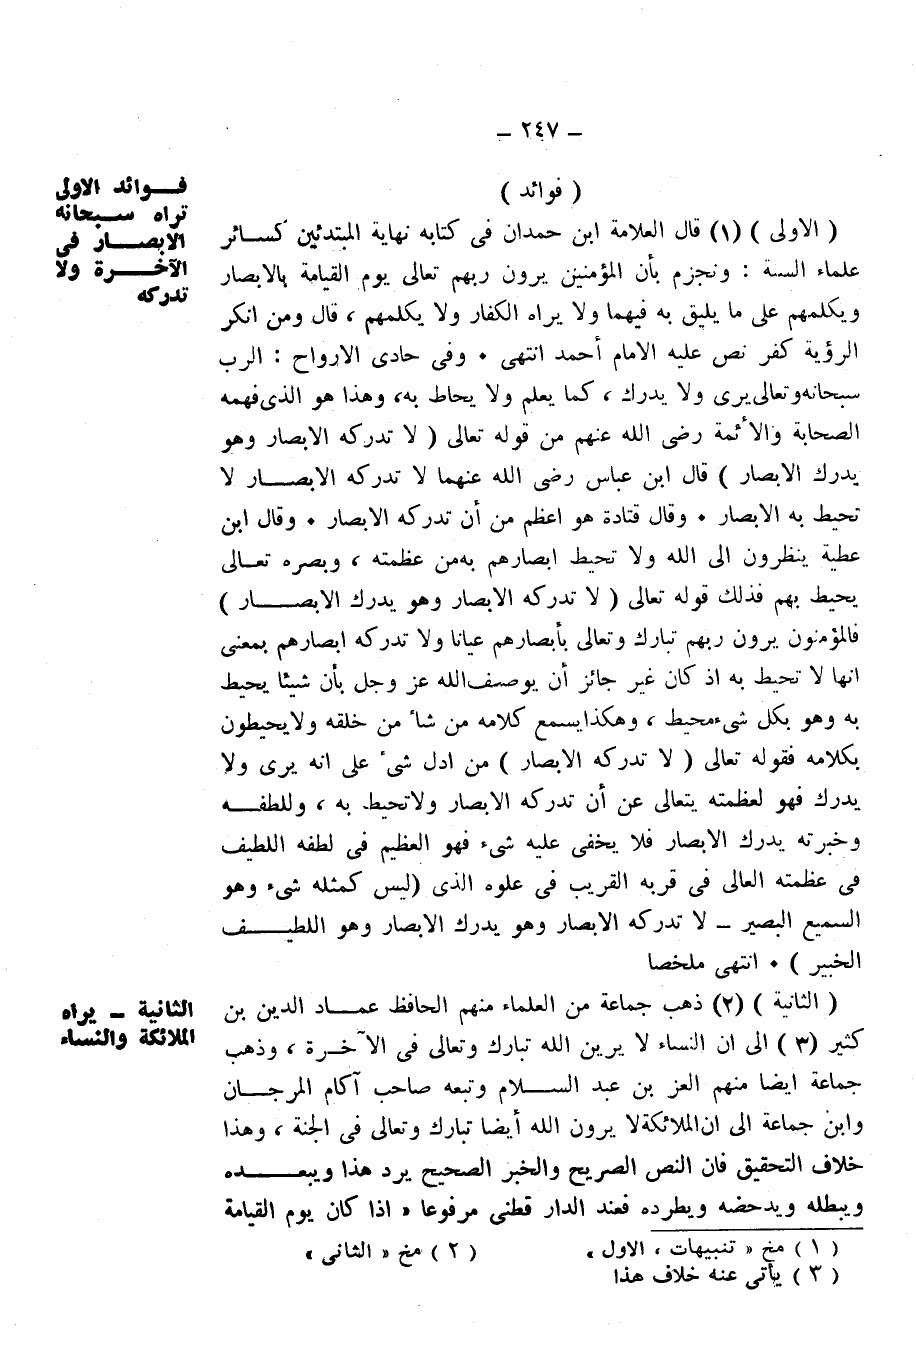 – ٢٤٧ –
( فوائد )
فـــوائد الاولى
تراه ســبحانه
الابصـــار فى
الآخـــرة ولا
تدركه
( الاولى ) (١) قال العلامة ابن حمدان فى كتابه نهاية المبتدئين كســائر
علماء السنة : ونجزم بأن المؤمنين يرون ربهم تعالى يوم القيامة بالابصار
ويكلمهم على ما يليق به فيهما ولا يراه الكفار ولا يكلمهم ، قال ومن انكر
الرؤية كفر نص عليه الامام أحمد انتهى ٠ وفى حادى الارواح : الرب
سبحانه وتعالى يرى ولا يدرك ، كما يعلم ولا يحاط به، وهذا هو الذى فهمه
الصحابة والأئمة رضى الله عنهم من قوله تعالى ( لا تدركه الابصار وهو
يدرك الابصار ) قال ابن عباس رضى الله عنهما لا تدركه الابصـــار لا
تحيط به الابصار ٠ وقال قتادة هو اعظم من أن تدركه الابصار ٠ وقال ابن
عطية ينظرون الى الله ولا تحيط ابصارهم به من عظمته ، وبصره تعــالى
يحيط بهم فذلك قوله تعالى ( لا تدركه الابصار وهو يدرك الابصـــار )
فالمؤمنون يرون ربهم تبارك وتعالى بأبصارهم عيانا ولا تدركه ابصارهم بمعنى
انها لا تحيط به اذ كان غير جائز أن يوصف الله عز وجل بأن شيئا يحيط
به وهو بكل شىء محيط ، وهكذا يسمع كلامه من شاء من خلقه ولا يحيطون
بكلامه فقوله تعالى ( لا تدركه الابصار ) من ادل شىء على انه يرى ولا
يدرك فهو لعظمته يتعالى عن أن تدركه الابصار ولا تحيط به ، وللطفــه
وخبرته يدرك الابصار فلا يخفى عليه شىء فهو العظيم فى لطفه اللطيف
فى عظمته العالى فى قربه القريب فى علوه الذى (ليس كمثله شىء وهو
السميع البصير – لا تدركه الابصار وهو يدرك الابصار وهو اللطيـــف
الخبير ) ٠ انتهى ملخصا
الثانية – يراه
الملائكة والنساء
( الثانية ) (٢) ذهب جماعة من العلماء منهم الحافظ عمـــاد الدين بن
كثير (٣ ) الى ان النساء لا يرين الله تبارك وتعالى فى الآخــرة ، وذهب
جماعة ايضا منهم العز بن عبد الســـلام وتبعه صاحب آكام المرجـــان
وابن جماعة الى ان الملائكة لا يرون الله أيضا تبارك وتعالى فى الجنة ، وهذا
خلاف التحقيق فان النص الصريح والخبر الصحيح يرد هذا ويبعـــده
ويبطله ويدحضه ويطرده فعند الدار قطنى مرفوعا « اذا كان يوم القيامة
( ١ ) مخ « تنبيهات ، الاول »
( ٢ ) مخ « الثانى »
( ٣ ) يأتى عنه خلاف هذا